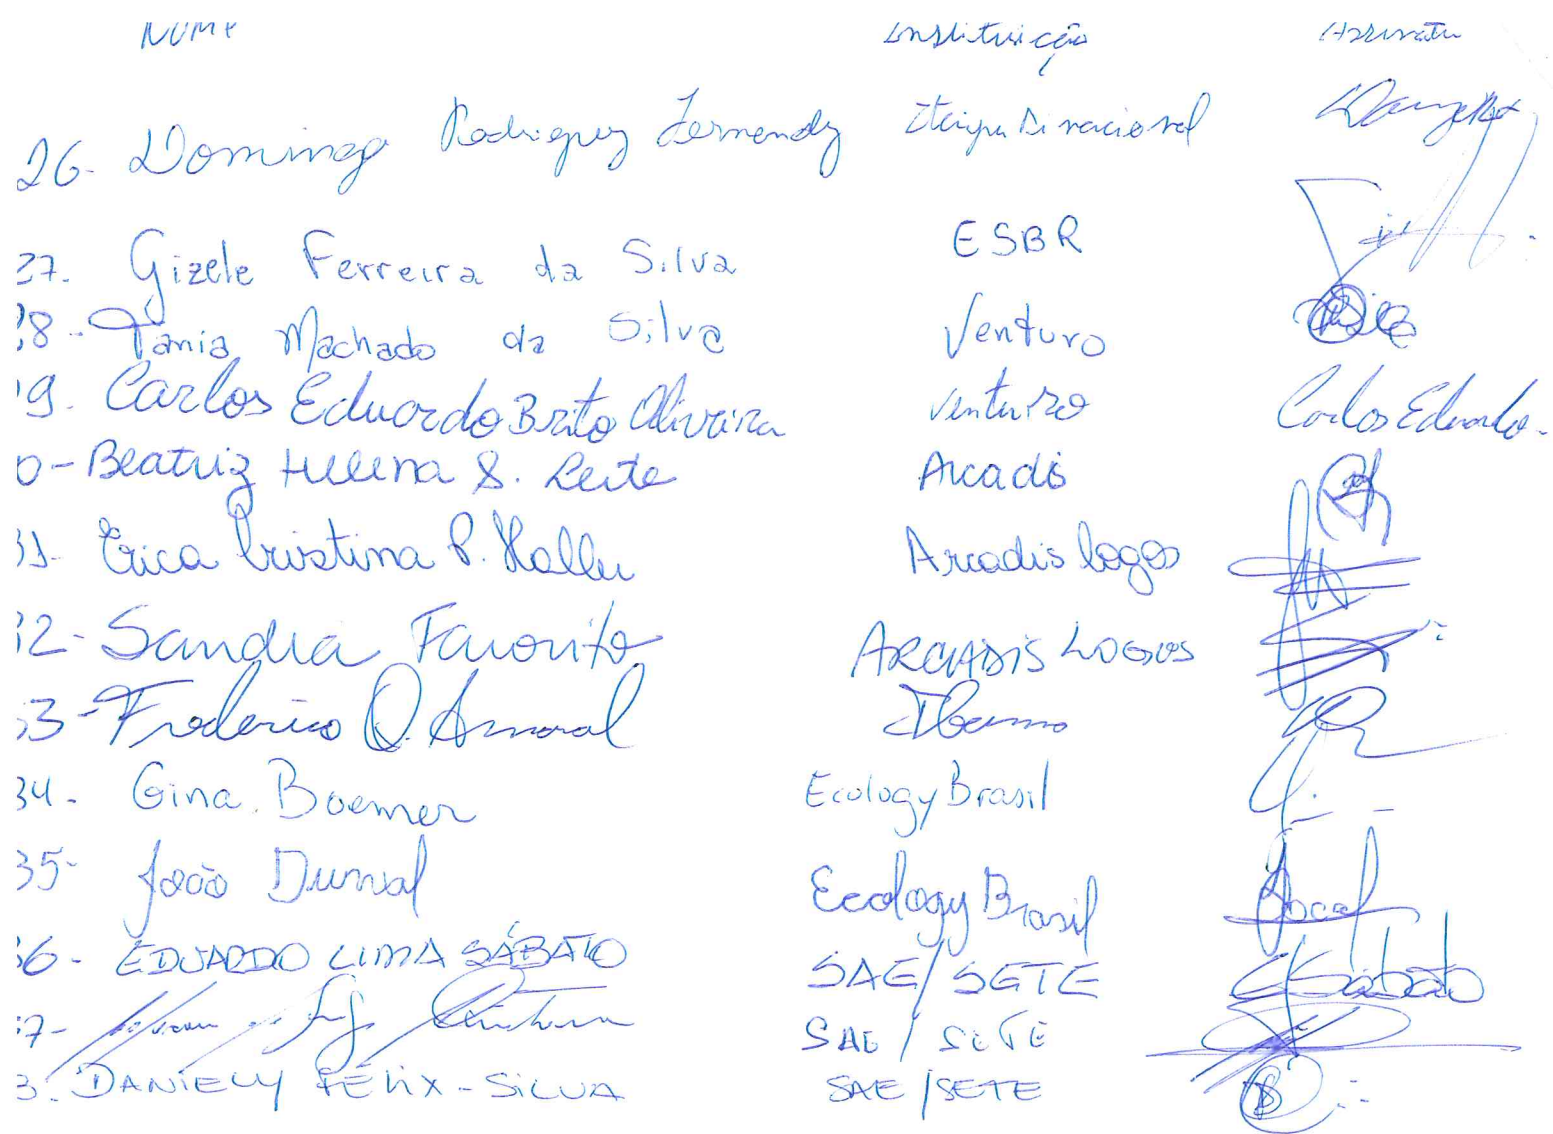 Nome Instituição Assinatu
26- Domingo Rodriguez Fernandez Itaipu Binacional
27. Gizele Ferreira da Silva ESBR
28- Tania Machado da Silva Venturo
29. Carlos Eduardo Brito Oliveira Venturo Carlos Eduardo.
0- Beatriz Helena S. Leite Arcadis
31- Erica Cristina P. Arcadis Logos
32- Sandra Favorito ARCADIS LOGOS
33- Frederico Q. Amaral Ibama
34- Gina Boemer Ecology Brasil
35- João Durval Ecology Brasil
36- EDUARDO LIMA SÁBATO SAE/SETE Sábato
37- SAE/SETE
3. DANIELY FÉLIX-SILVA SAE/SETE